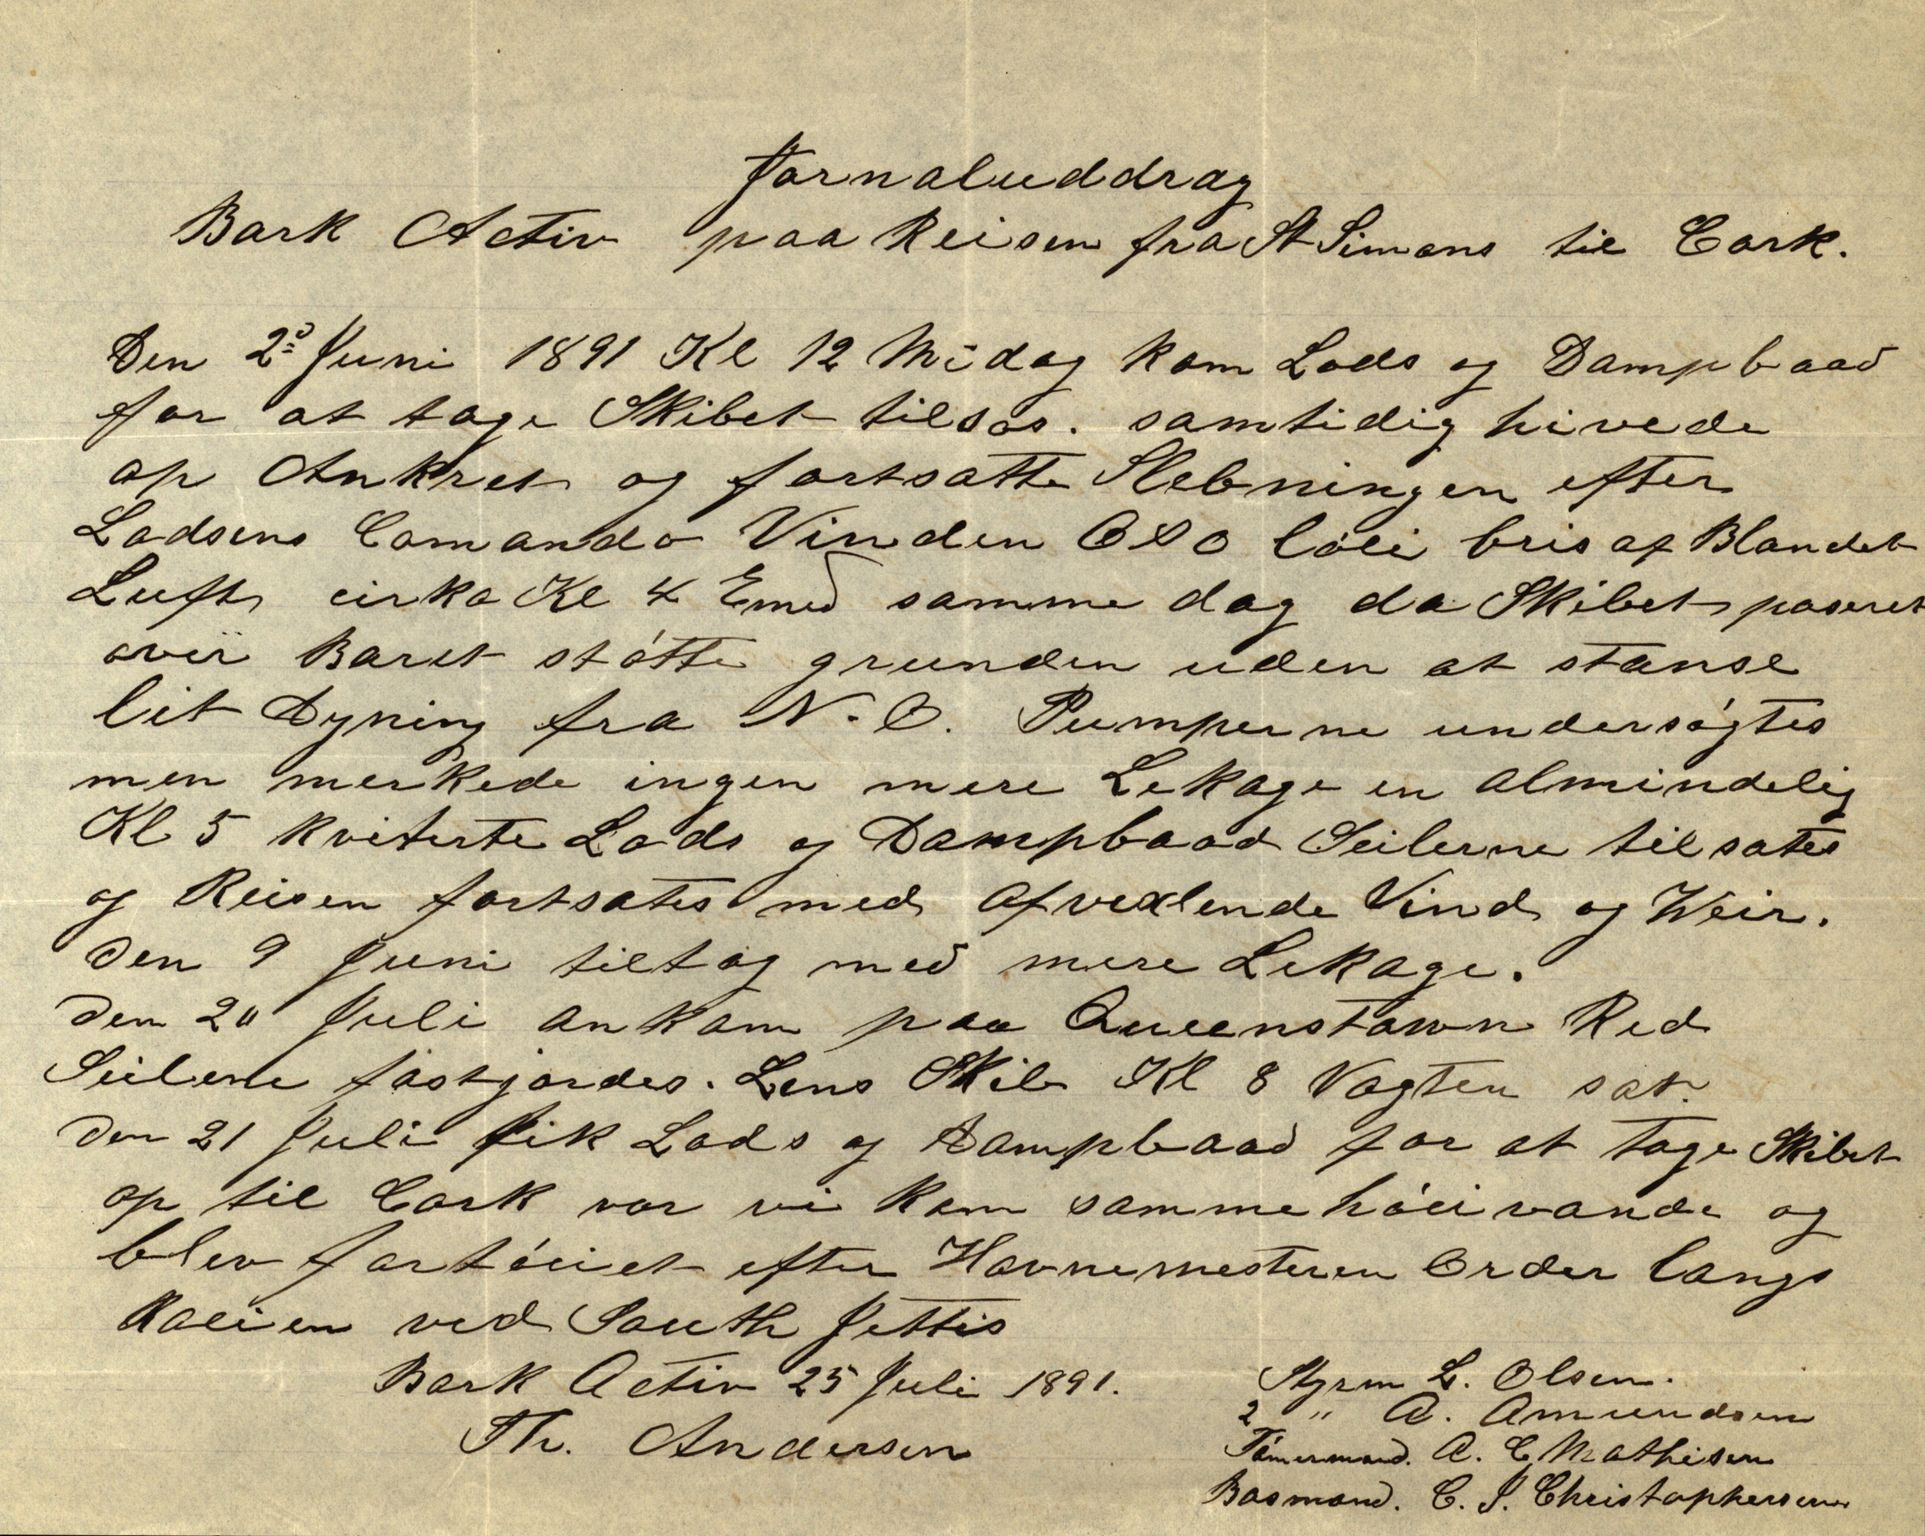 Jornaluddrag
Bark Activ paa Reisen fra St Simons til Cork.
Den 2d Juni 1891 Kl 12 Midag kom Lods og Dampbaad
for at tage Skibet tilsøs. samtidig hivede
op Ankret og fortsatte Slebningen efter
Lodsens Comando Vinden OSO løi bris af Blandet
Luft cirka Kl 4 Emd samme dag da Skibet paseret
over Baret støtte grunden uden at stanse
lit Dyning fra N.O. Pumperne undersøgtes
men merkede ingen mere Lekage en almindelig
Kl 5 kviterte Lods og Dampbaad Seilerne tilsates
og Reisen fortsates med afvexlende Vind og Weir.
den 9 Juni tiltog med mere Lekage.
den 20 Juli ankom paa Queenstown Red
Seilene fastgjordes. Lens Skib Kl 8 Vagten sat.
den 21 Juli fik Lods og Dampbaad for at tage Skibet
op til Cork vor vi kom samme høivande og
blev fortøiet efter Havnemesteren Order langs
Kaien ved South Jettis
Bark Activ 25 Juli 1891.
Th. Andersen
Styrm L. Olsen.
2 " A. Amundsen
Tømermand. A. C Mathisen
Bosmand. C. J. Christophersen